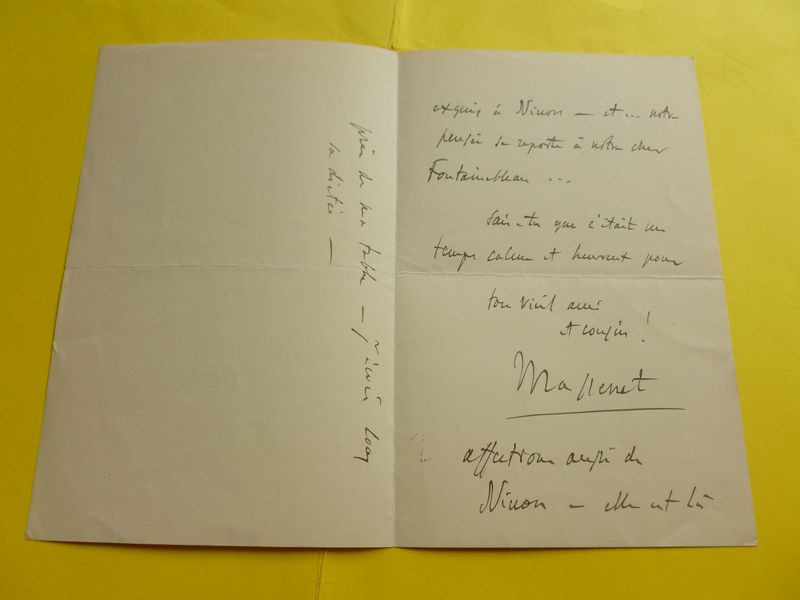 exquis à Ninon — et ... notre
pensée se reporte à notre cher
Fontainebleau ...
Sais-tu que c'était un
temps calme et heureux pour
ton vieil ami
et cousin !
Massenet
affections aussi de
Ninon — elle est là
près de ma table — j'écris sous
sa dictée —